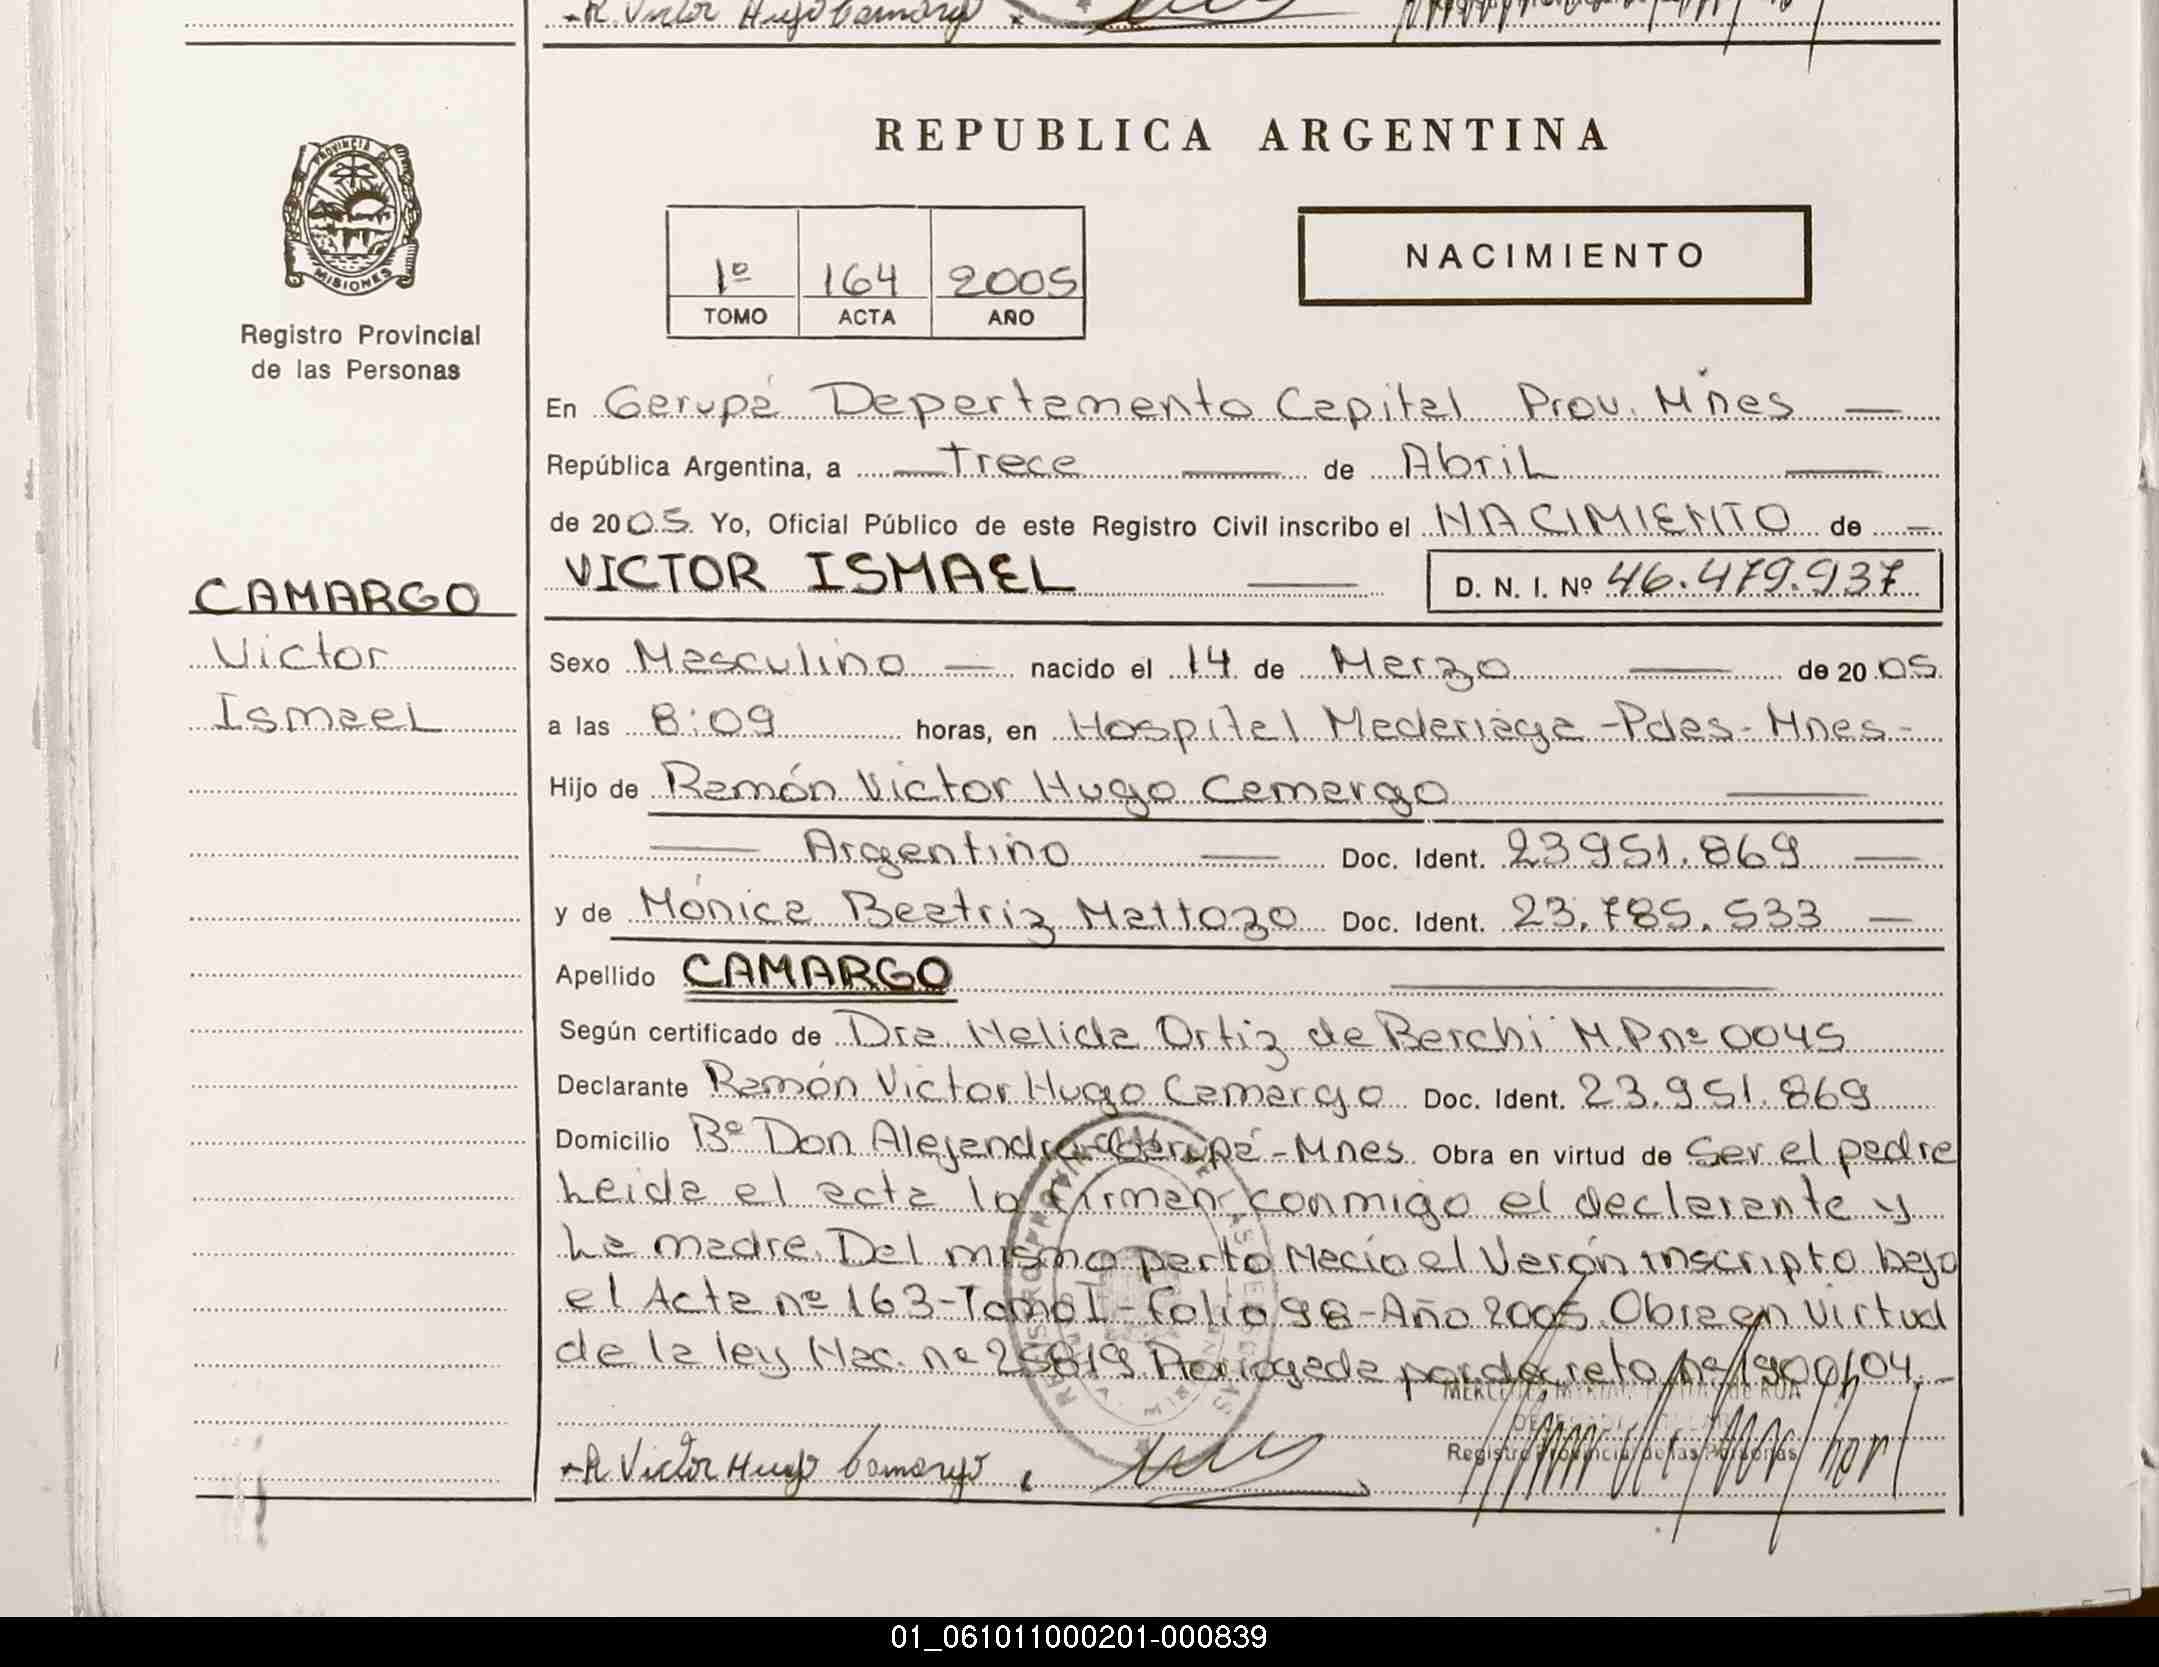 R. Victor Hugo Camargo
REPUBLICA ARGENTINA
PROVINCIA DE
MISIONES
Registro Provincial
de las Personas
1º 164 2005
TOMO ACTA AÑO
NACIMIENTO
En Garupá Departamento Capital Prov. Mnes
República Argentina, a Trece de Abril
de 2005. Yo, Oficial Público de este Registro Civil inscribo el NACIMIENTO de
CAMARGO
Victor
Ismael
VICTOR ISMAEL D. N. I. Nº 46.479.937
Sexo Masculino nacido el 14 de Marzo de 2005
a las 8:09 horas, en Hospital Madariaga - Pdas - Mnes -
Hijo de Ramón Victor Hugo Camargo
Argentino Doc. Ident. 23951.869
y de Mónica Beatriz Mattozo Doc. Ident. 23.785.533
Apellido CAMARGO
Según certificado de Dra. Nelida Ortiz de Berchi M.P nº 0045
Declarante Ramón Victor Hugo Camargo Doc. Ident. 23.951.869
Domicilio Bº Don Alejandro - Garupá - Mnes. Obra en virtud de Ser el padre
Leida el acta la firman conmigo el declarante y
La madre. Del mismo parto Nacio el Varón inscripto bajo
el Acta nº 163 - Tomo I - Folio 98 - Año 2005. Obra en Virtud
de la ley Nac. nº 25819 Prorrogada por decreto nº 1900/04.
R Victor Hugo Camargo
Registro Provincial de las Personas
01_061011000201-000839